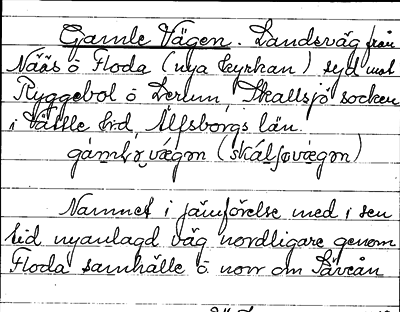 Gamle Vägen. Landsväg från
Nääs ö Floda (nya kyrkan) syd mot
Ryggebol ö Lerum, Skallsjö socken
i Vättle hd, Älfsborgs län.
gámlə vǽgən (skálʃøvǽgən)
Namnet i jämförelse med i sen
tid nyanlagd väg nordligare genom
Floda samhälle ö norr om Säveån